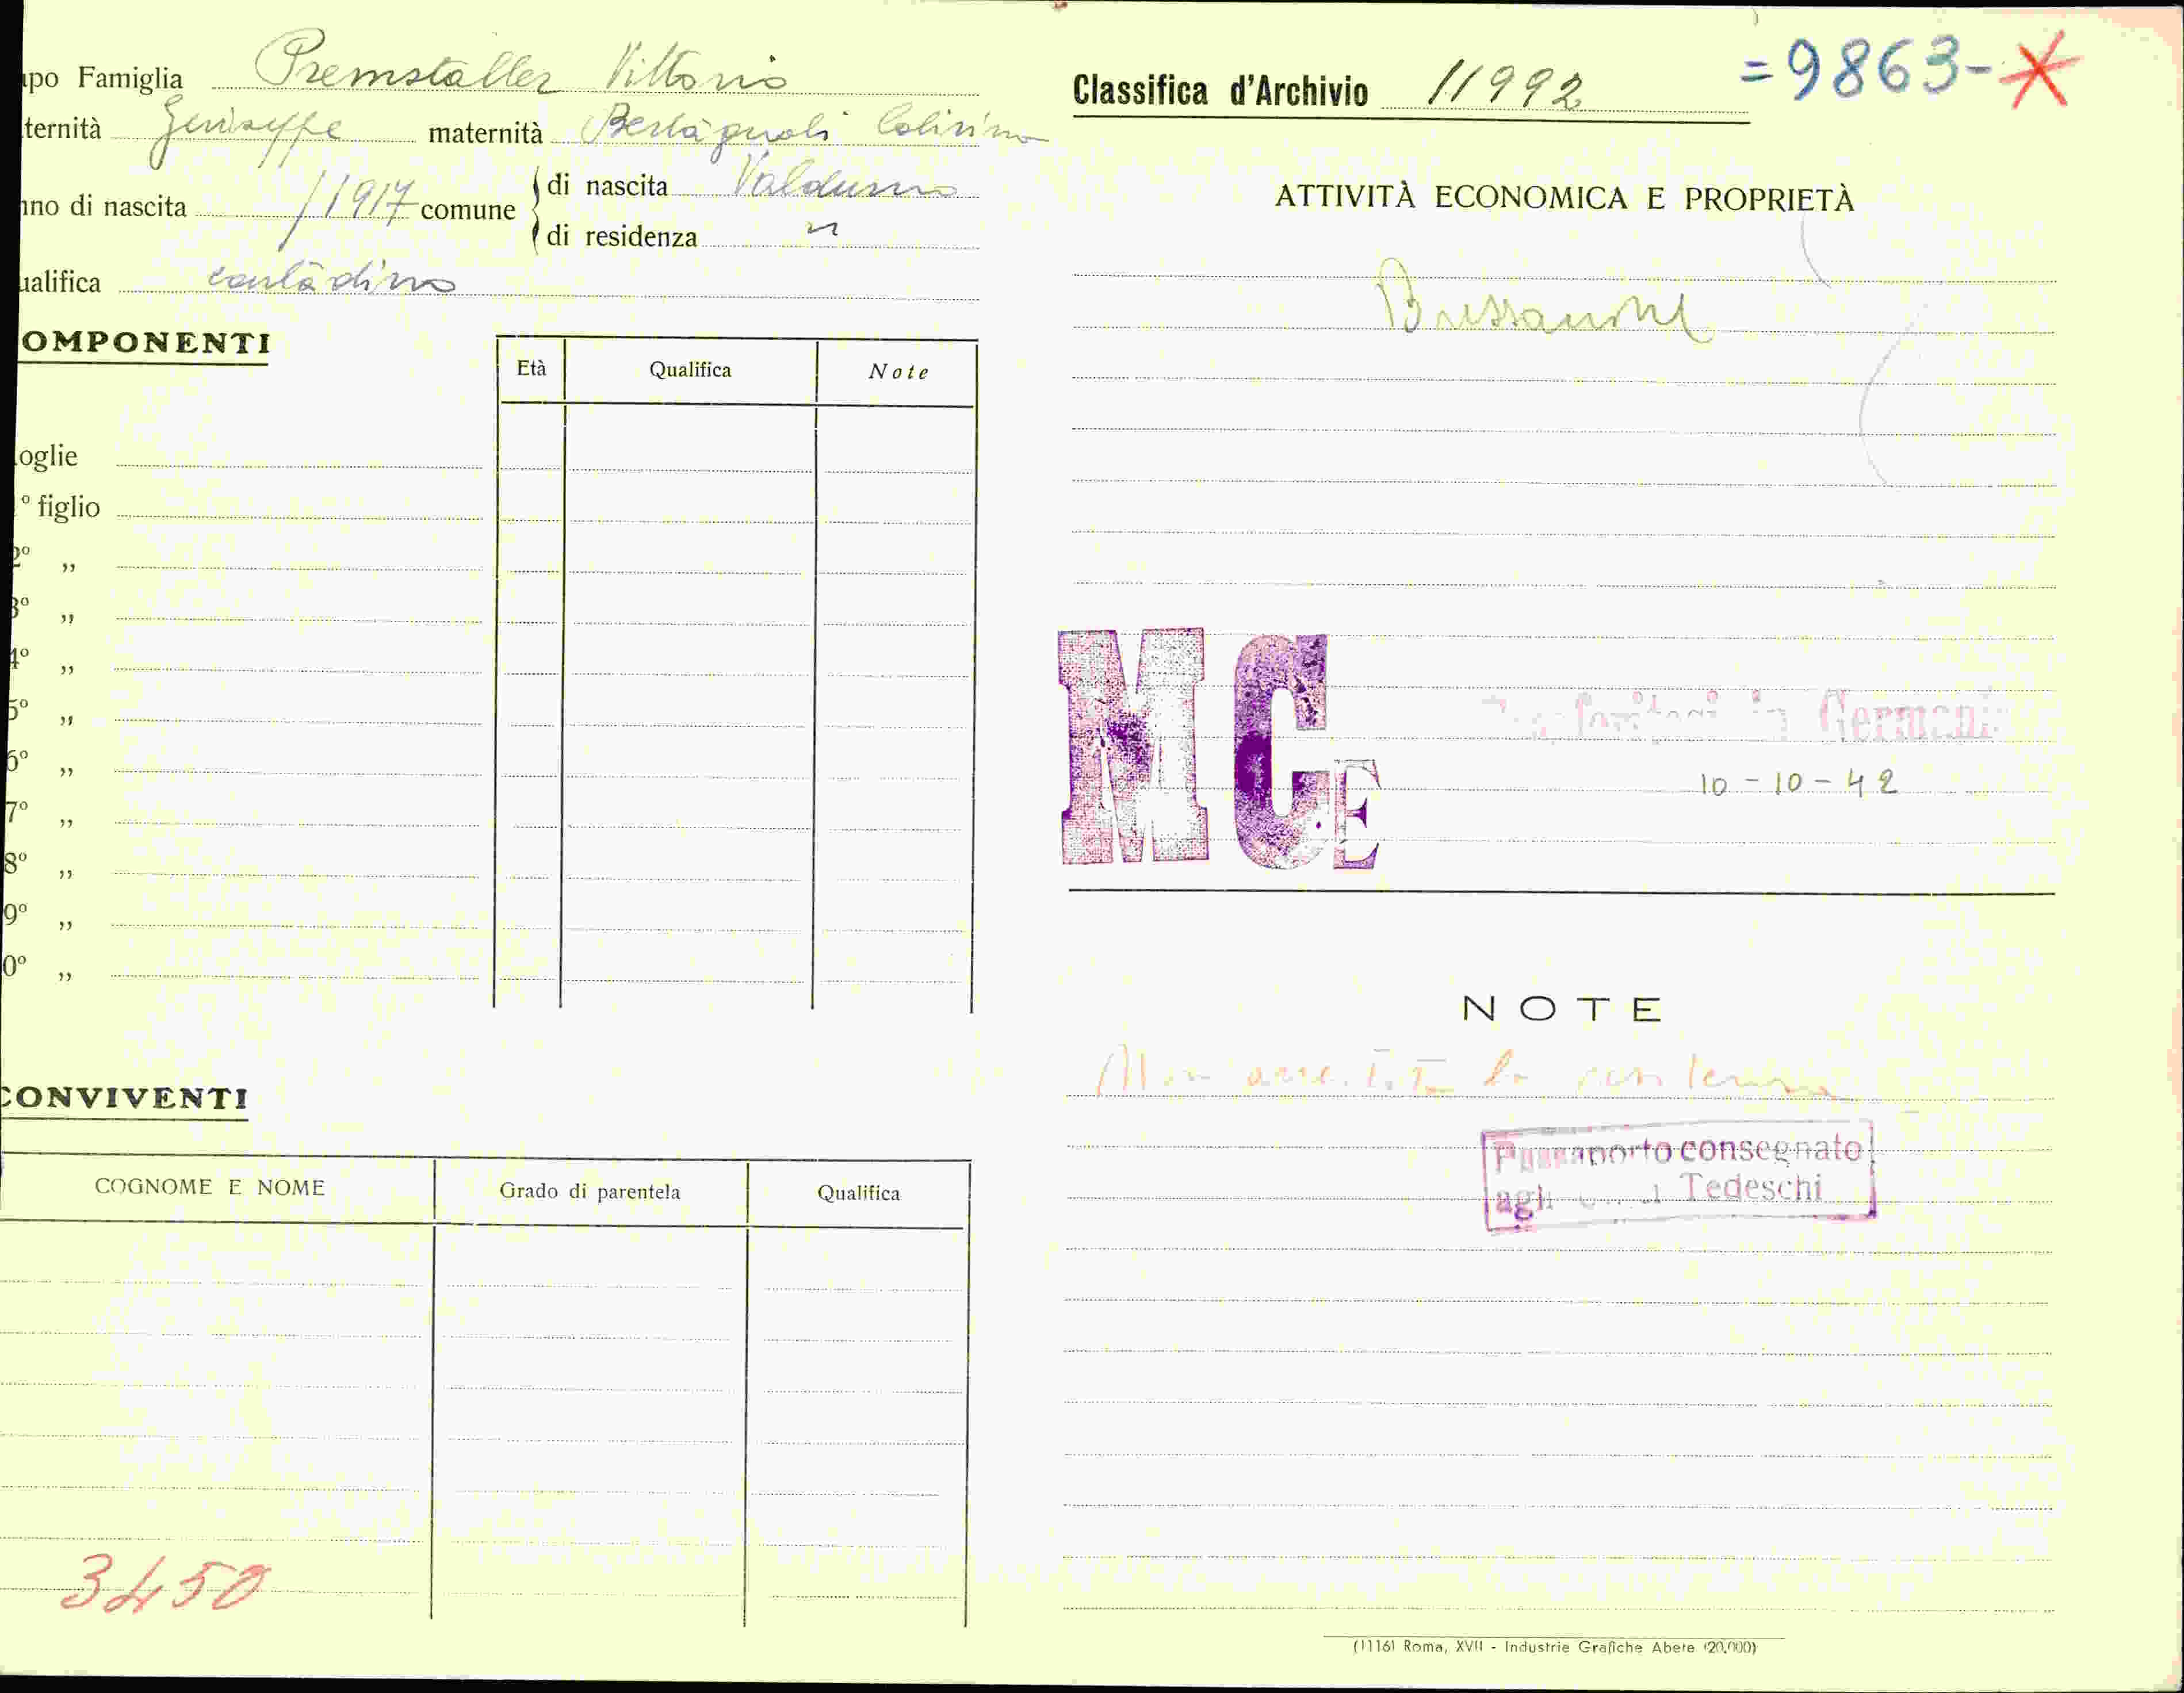 po Famiglia Premstaller Vittorio
ternità Giuseppe maternità Bertagnoli
nno di nascita 1917 comune
di nascita Valdurna
di residenza "
ualifica contadino
OMPONENTI
Età Qualifica Note
oglie
º figlio
2º „
3º „
4º „
5º „
6º „
7º „
8º „
9º „
0º „
CONVIVENTI
COGNOME E NOME Grado di parentela Qualifica
3450
Classifica d'Archivio 11992 =9863-*
ATTIVITÀ ECONOMICA E PROPRIETÀ
Bressanone
MCE
in Germani
10-10-42
NOTE
Non accettata la
Passaporto consegnato
agli Tedeschi
(1116) Roma, XVII - Industrie Grafiche Abete (20.000)